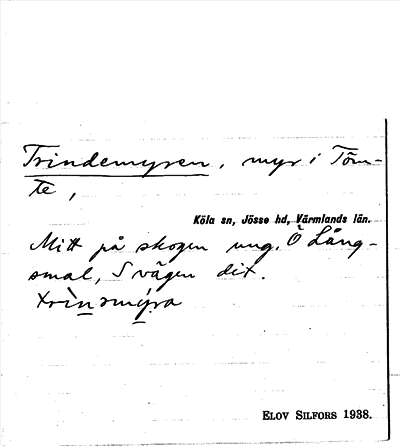 Trindemyren, myr i Töm-
te,
Köla sn, Jösse hd, Värmlands län.
Mitt på skogen ung. Ö Lång-
smal, S vägen dit.
trìnəmy̆ra
ELOV SILFORS 1938.